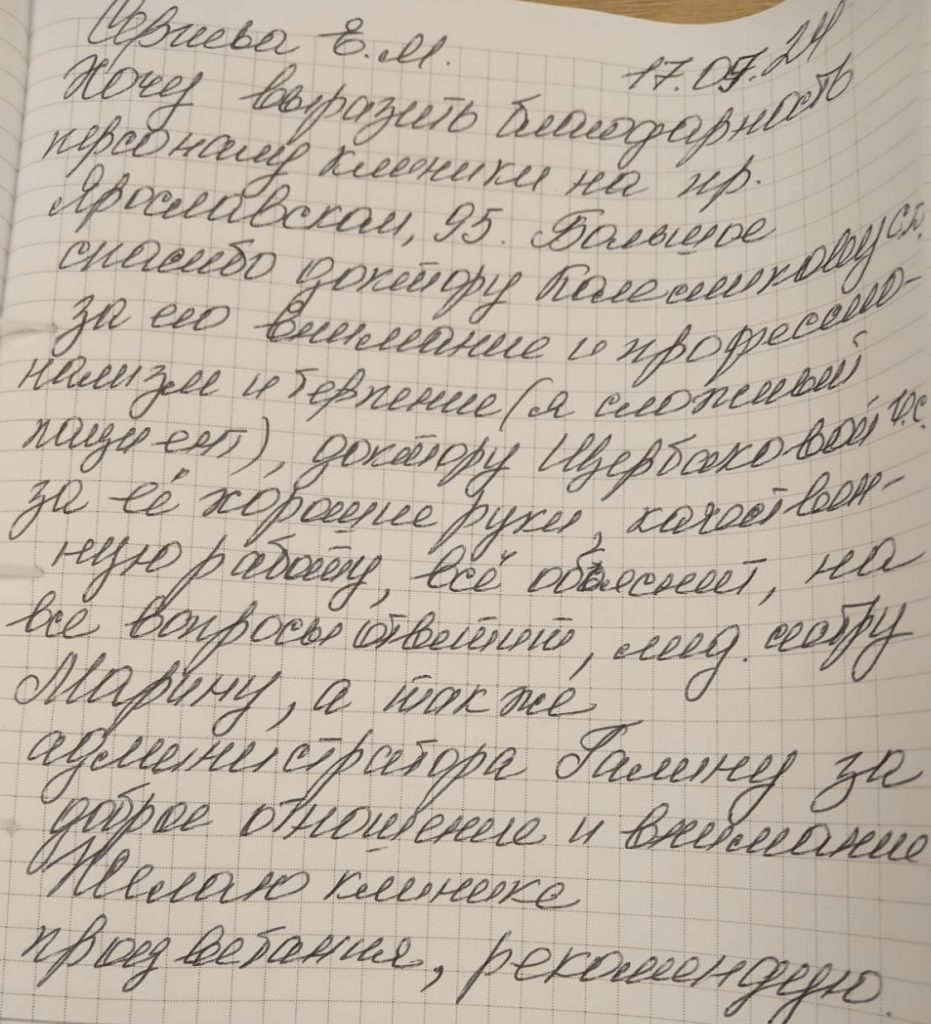 Е.М. 17.07.24
Хочу выразить благодарность
персоналу клиники на пр.
Ярославском, 95. Большое
спасибо доктору Колесникову С.В.
за его внимание и профессио-
нализм и терпение (я сложный
пациент), доктору Щербаковой И.С.
за её хорошие руки, качествен-
ную работу, всё объяснит, на
все вопросы ответит, мед. сестру
Марину, а также
администратора Галину за
доброе отношение и внимание
Желаю клинике
процветания, рекомендую.